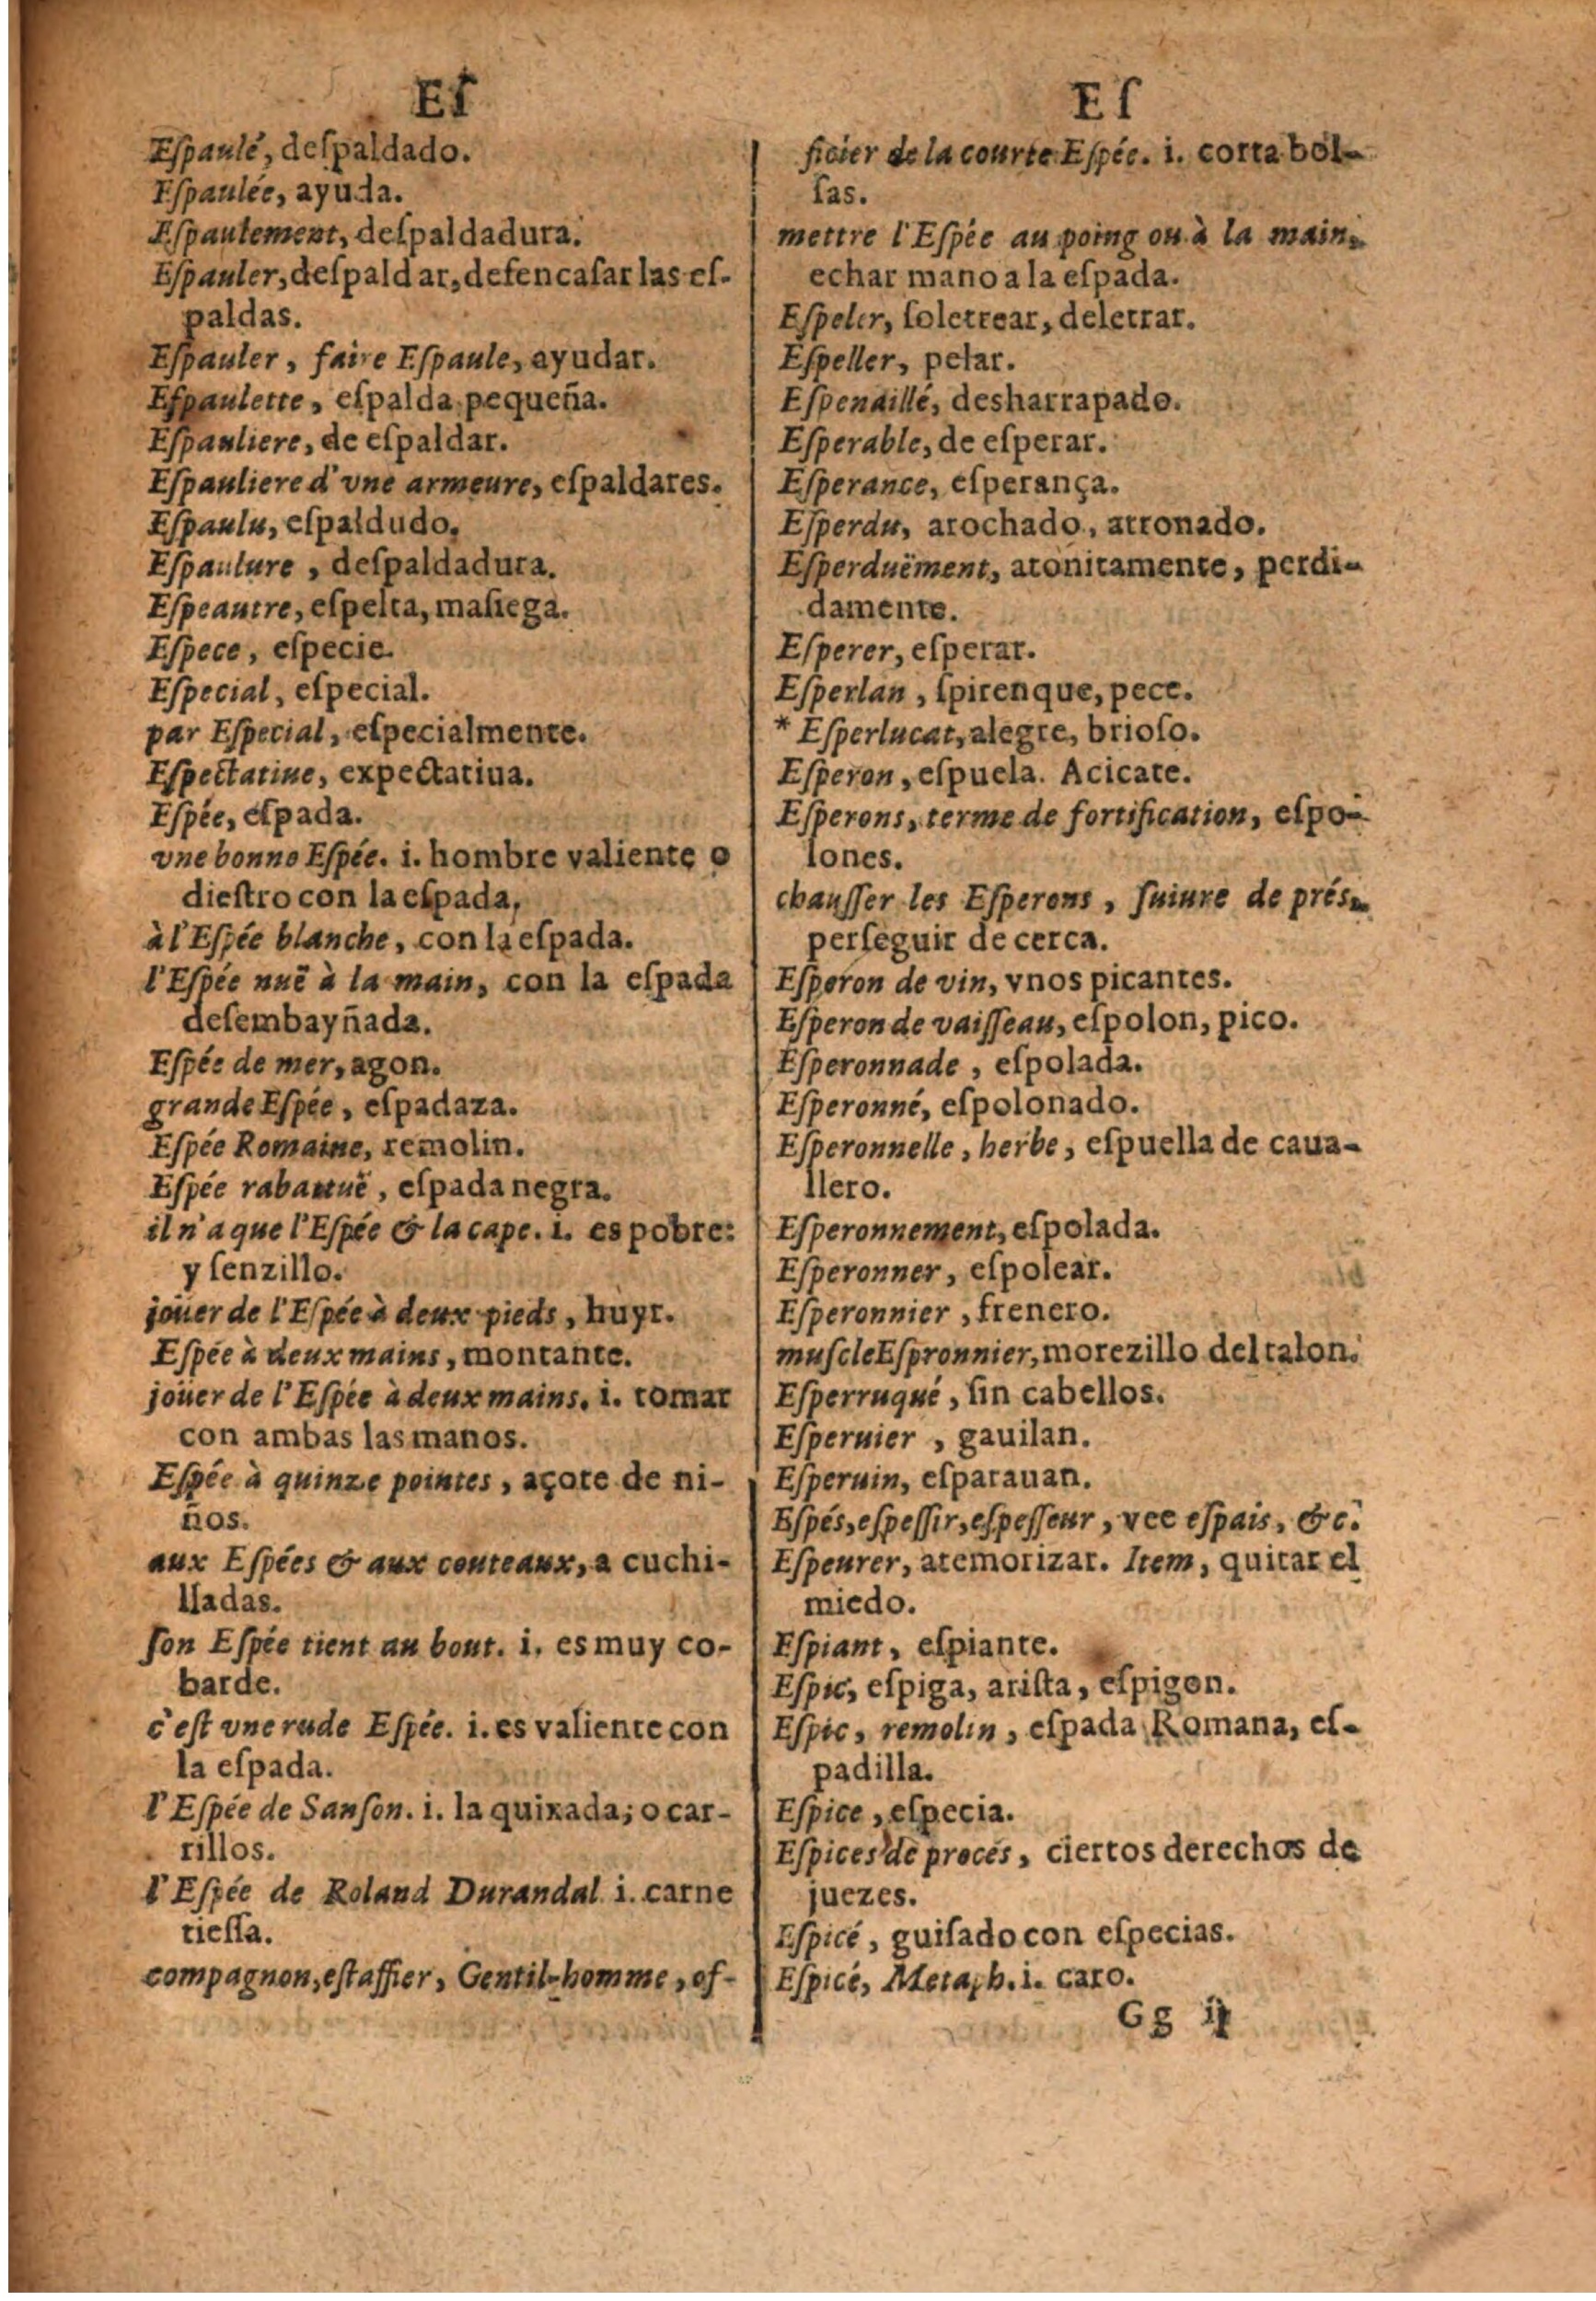 Eſ
Eſpaulé, deſpaldado.
Eſpaulée, ayuda.
Eſpaulement, deſpaldadura.
Eſpauler, deſpaldar, deſencaſar las eſ-
paldas.
Eſpauler, faire Eſpaule, ayudar.
Eſpaulette, eſpalda pequeña.
Eſpauliere, de eſpaldar.
Eſpauliere d'vne armeure, eſpaldares.
Eſpaulu, eſpaldudo.
Eſpaulure, deſpaldadura.
Eſpeautre, eſpelta, maſiega.
Eſpece, eſpecie.
Eſpecial, eſpecial.
par Eſpecial, eſpecialmente.
Eſpectatiue, expectatiua.
Eſpée, eſpada.
vne bonne Eſpée. i. hombre valiente o
dieſtro con la eſpada,
à l'Eſpée blanche, con la eſpada.
l'Eſpée nuë à la main, con la eſpada
deſembayñada.
Eſpée de mer, agon.
grande Eſpée, eſpadaza.
Eſpée Romaine, remolin.
Eſpée rabattuë, eſpada negra.
il n'a que l'Eſpée & la cape. i. es pobre:
y ſenzillo.
joüer de l'Eſpée à deux pieds, huyr.
Eſpée à deux mains, montante.
joüer de l'Eſpée à deux mains. i. tomar
con ambas las manos.
Eſpée à quinze pointes, açote de ni-
ños.
aux Eſpées & aux couteaux, a cuchi-
lladas.
ſon Eſpée tient au bout. i. es muy co-
barde.
c'eſt vne rude Eſpée. i. es valiente con
la eſpada.
l'Eſpée de Sanſon. i. la quixada; o car-
rillos.
l'Eſpée de Roland Durandal i. carne
tieſſa.
compagnon, eſtaffier, Gentil-homme, of-
Eſ
ficier de la courte Eſpée. i. corta bol-
ſas.
mettre l'Eſpée au poing ou à la main,
echar mano a la eſpada.
Eſpeler, ſoletrear, deletrar.
Eſpeller, pelar.
Eſpenaillé, desharrapado.
Eſperable, de eſperar.
Eſperance, eſperança.
Eſperdu, atochado, attonado.
Eſperduëment, atonitamente, perdi-
damente.
Eſperer, eſperar.
Eſperlan, ſpirenque, pece.
* Eſperlucat, alegre, brioſo.
Eſperon, eſpuela. Acicate.
Eſperons, terme de fortification, eſpo-
lones.
chauſſer les Eſperons, ſuiure de prés,
perſeguir de cerca.
Eſperon de vin, vnos picantes.
Eſperon de vaiſſeau, eſpolon, pico.
Eſperonnade, eſpolada.
Eſperonné, eſpolonado.
Eſperonnelle, herbe, eſpuella de caua-
llero.
Eſperonnement, eſpolada.
Eſperonner, eſpolear.
Eſperonnier, frenero.
muſcle Eſpronnier, morezillo del talon.
Eſperruqué, ſin cabellos.
Eſperuier, gauilan.
Eſperuin, eſparauan.
Eſpés, eſpeſſir, eſpeſſeur, vee eſpais, &c.
Eſpeurer, atemorizar. Item, quitar el
miedo.
Eſpiant, eſpiante.
Eſpic, eſpiga, ariſta, eſpigon.
Eſpic, remolin, eſpada Romana, eſ-
padilla.
Eſpice, eſpecia.
Eſpices de procés, ciertos derechos de
juezes.
Eſpicé, guiſado con eſpecias.
Eſpicé, Metaph. i. caro.
Gg ij